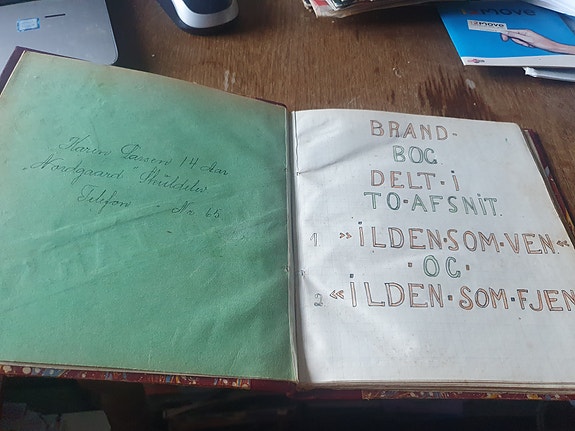 Karen Lassen 14 Aar
"Nordgaard" Skuldelev
Telefon - Nr 65
BRAND-
BOG
DELT·I
TO·AFSNIT.
1. »ILDEN·SOM·VEN«
·OG·
2. «ILDEN·SOM·FJEN
move